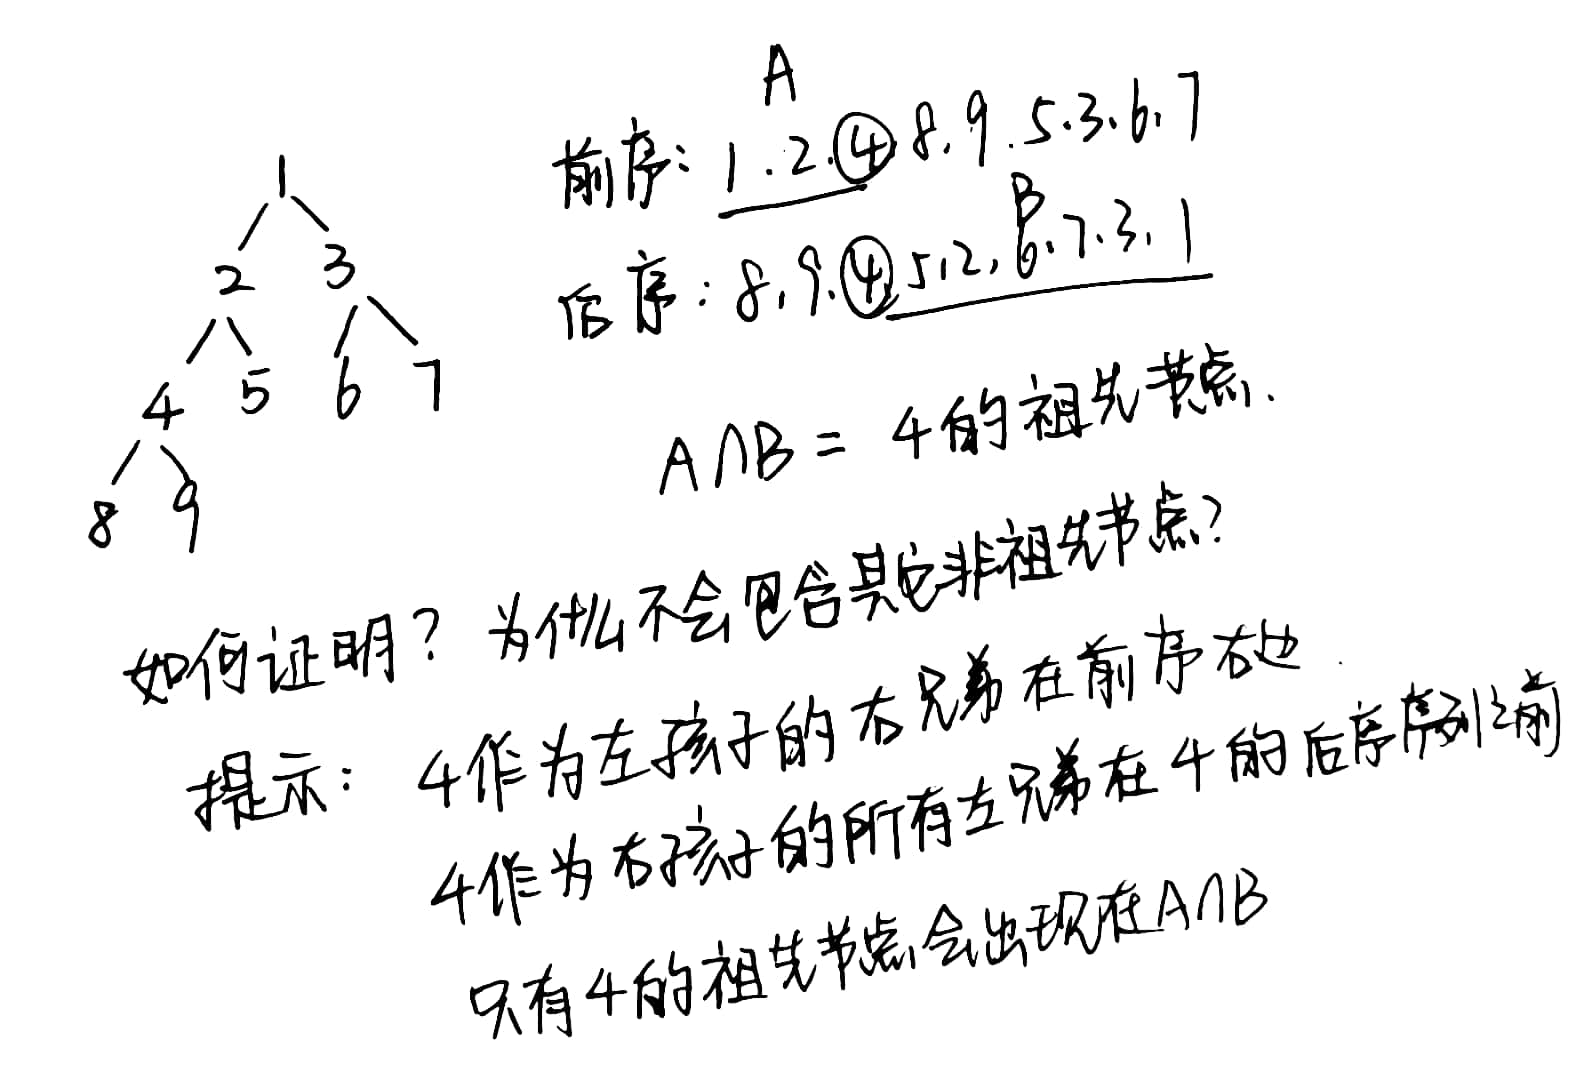 A
前序: 1.2.④.8.9.5.3.6.7
B
后序: 8.9.④,5,2,6.7.3.1
1
2 3
4 5 6 7
8 9
A∩B = 4的祖先节点.
如何证明? 为什么不会包含其它非祖先节点?
提示: 4作为左孩子的右兄弟在前序右边.
4作为右孩子的所有左兄弟在4的后序序列之前
只有4的祖先节点会出现在A∩B